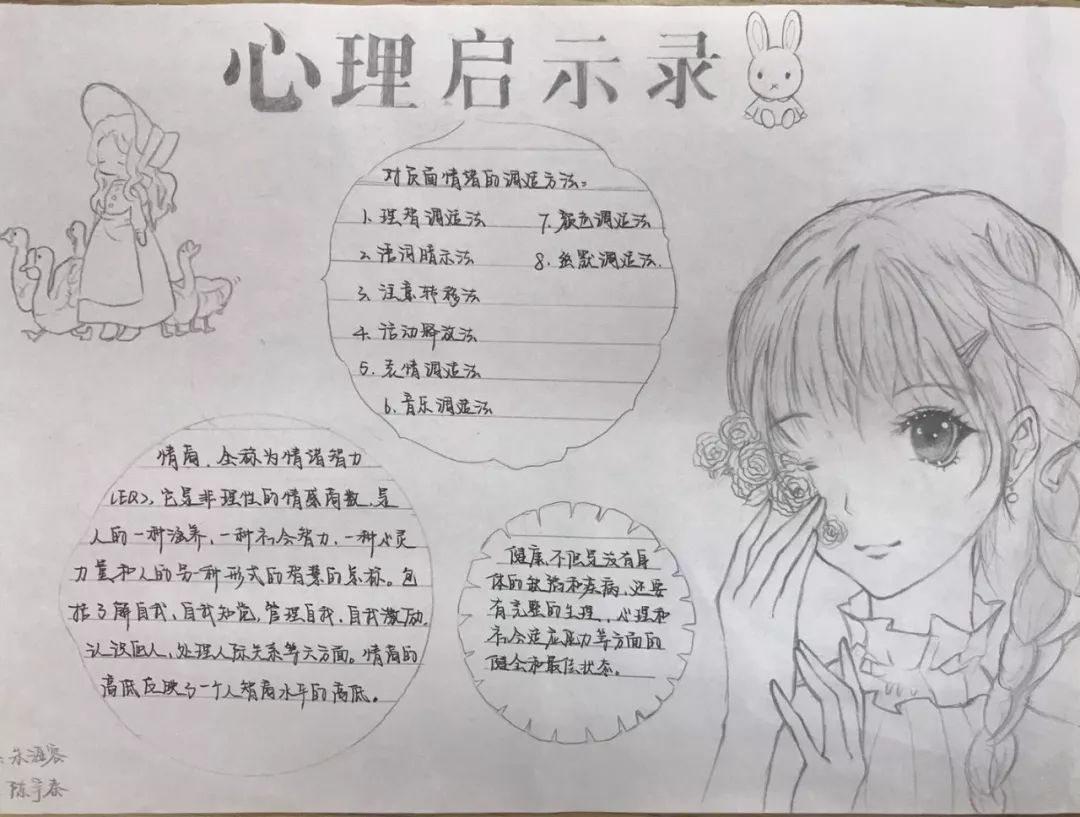 心理启示录
对反面情绪的调适方法:
1. 理智调适法
2. 语词暗示法
3. 注意转移法
4. 活动释放法
5. 表情调适法
6. 音乐调适法
7. 颜色调适法
8. 幽默调适法.
情商,全称为情绪智力
(EQ),它是非理性的情感商数,是
人的一种涵养,一种社会智力,一种心灵
力量和人的另一种形式的智慧的总称。包
括了解自我,自我知觉,管理自我,自我激励,
认识他人,处理人际关系等六方面。情商的
高低反映了一个人智商水平的高低。
健康不但是没有身
体的缺陷和疾病,还要
有完整的生理、心理和
社会适应能力等方面的
健全和最佳状态。
朱海容
陈宇春